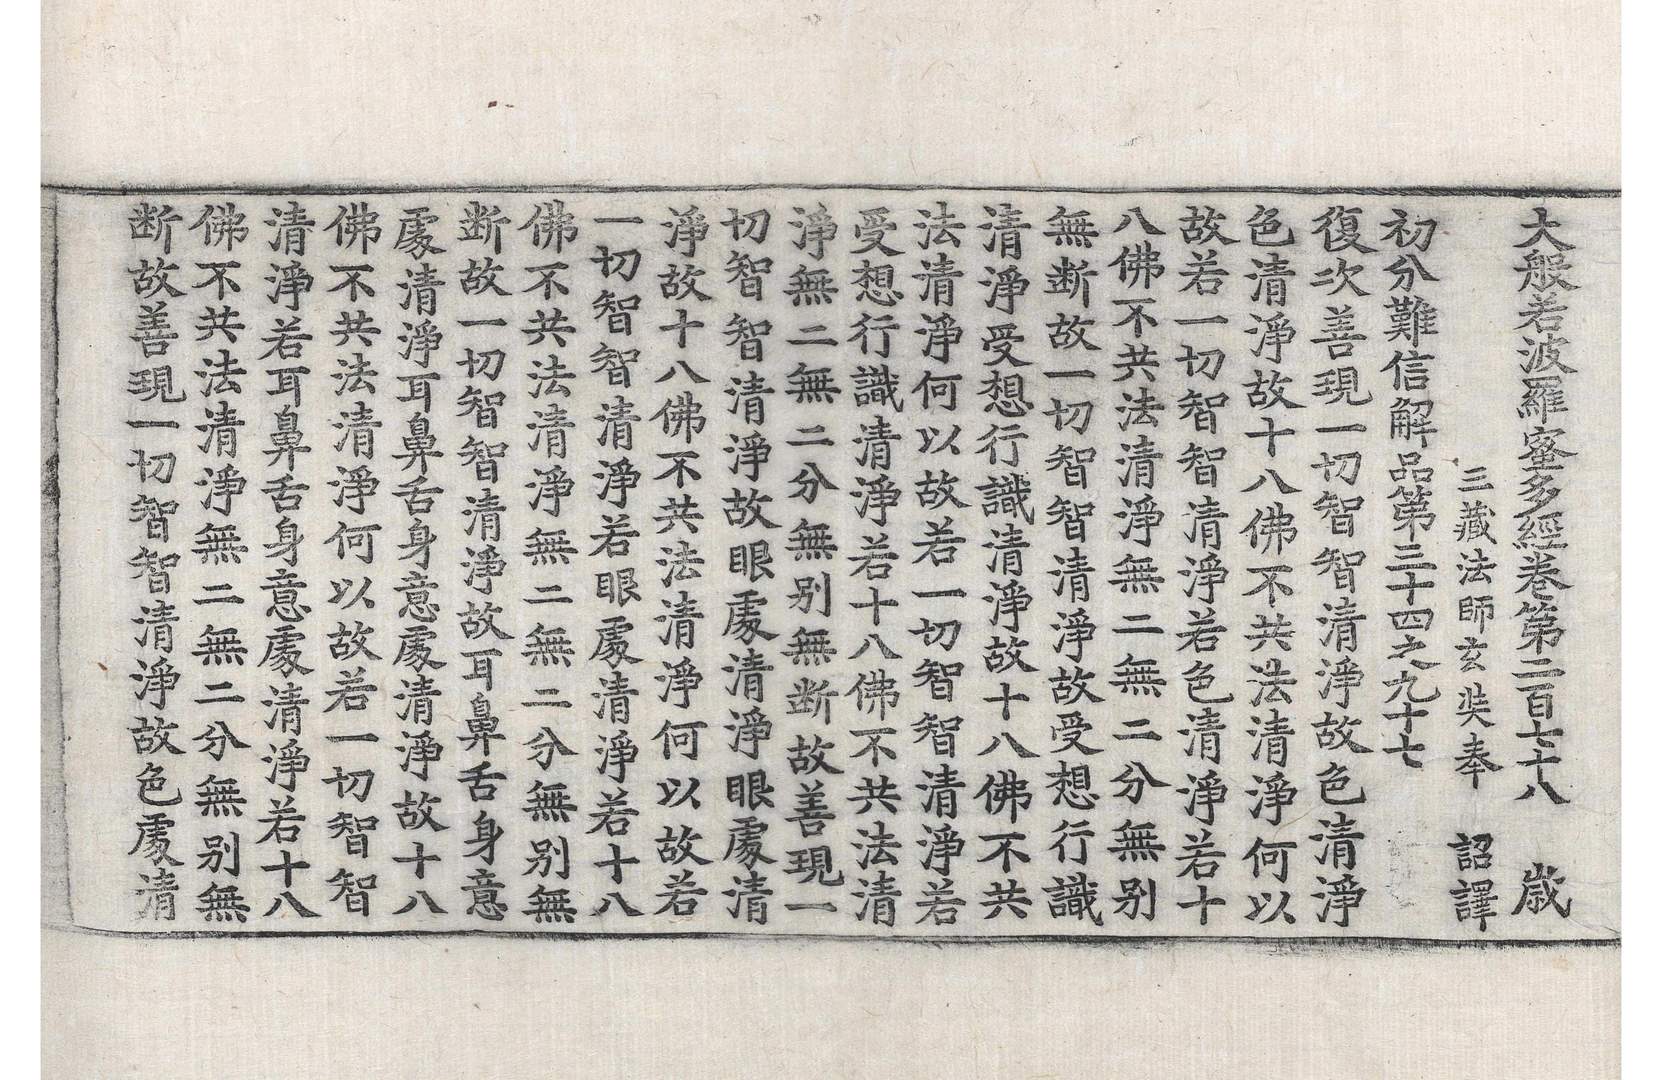 大般若波羅蜜多經卷第二百七十八 歳
三藏法師玄奘奉 詔譯
初分難信解品第三十四之九十七
復次善現一切智智清淨故色清淨
色清淨故十八佛不共法清淨何以
故若一切智智清淨若色清淨若十
八佛不共法清淨無二無二分無别
無断故一切智智清淨故受想行識
清淨受想行識清淨故十八佛不共
法清淨何以故若一切智智清淨若
受想行識清淨若十八佛不共法清
淨無二無二分無别無断故善現一
切智智清淨故眼處清淨眼處清
淨故十八佛不共法清淨何以故若
一切智智清淨若眼處清淨若十八
佛不共法清淨無二無二分無别無
断故一切智智清淨故耳鼻舌身意
處清淨耳鼻舌身意處清淨故十八
佛不共法清淨何以故若一切智智
清淨若耳鼻舌身意處清淨若十八
佛不共法清淨無二無二分無别無
断故善現一切智智清淨故色處清